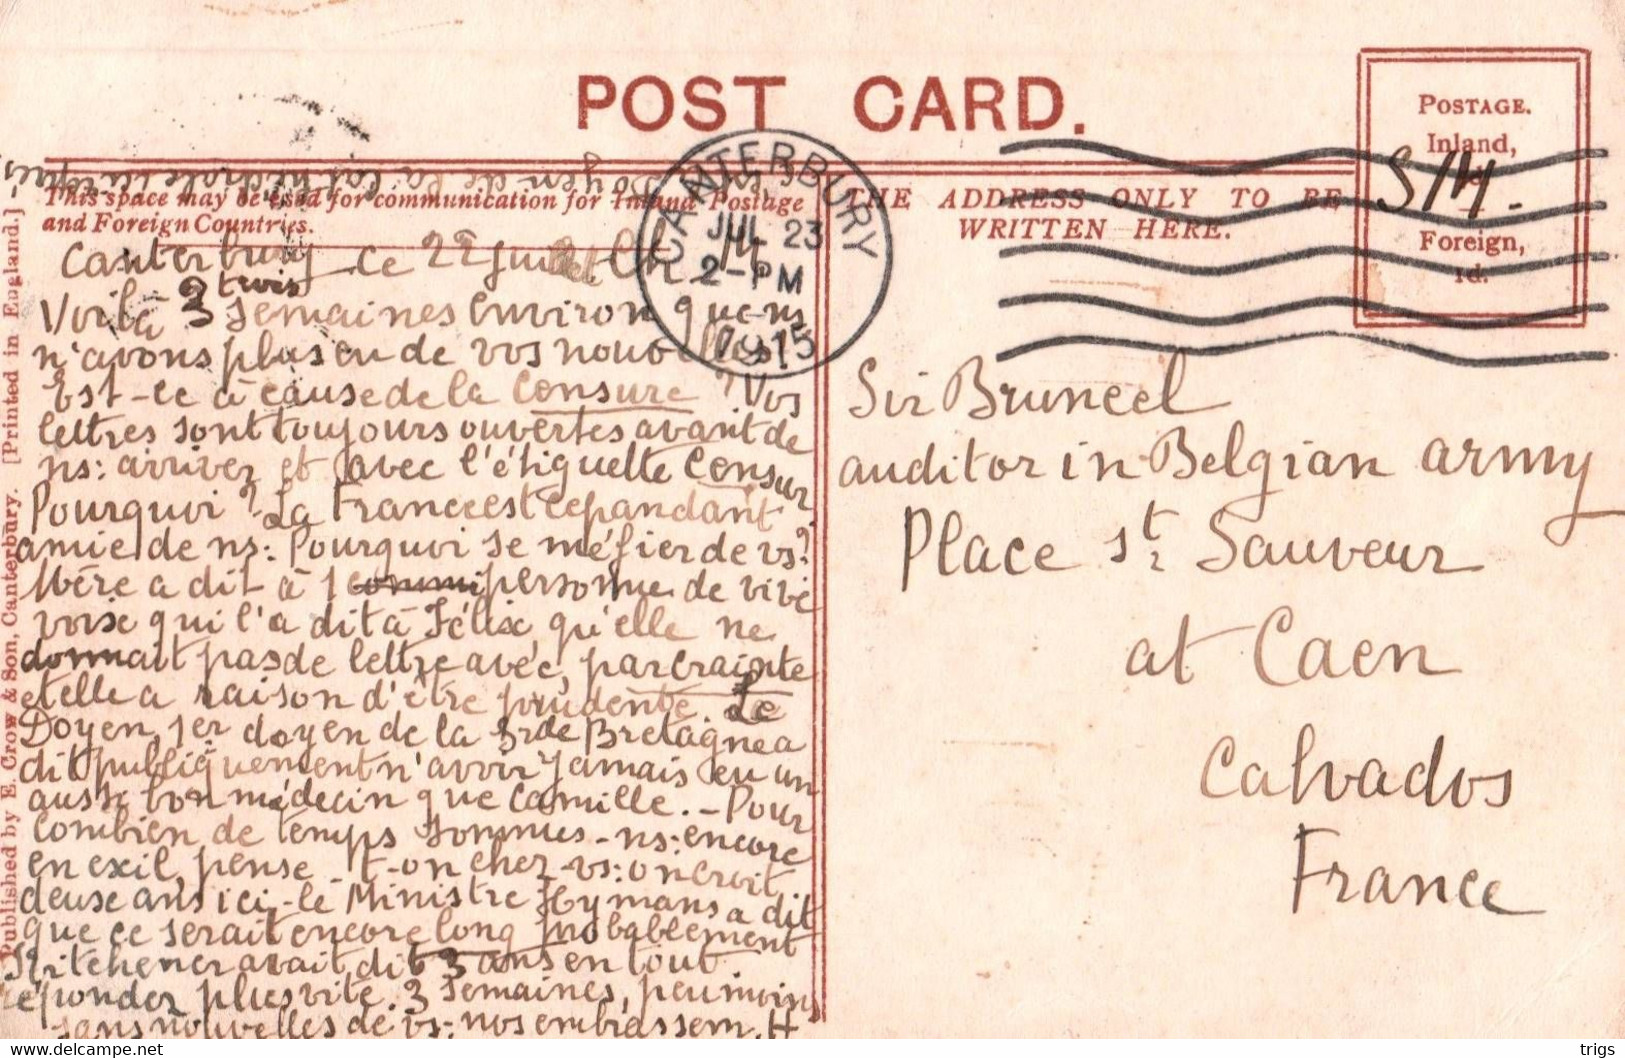 POST CARD.
POSTAGE.
Inland,
Foreign,
1d.
S/M.
CANTERBURY
JUL 23
2-PM
1915
This space may be used for communication for Inland Postage
and Foreign Countries.
THE ADDRESS ONLY TO BE
WRITTEN HERE.
Doyen de la
Canterbury ce 22 juillet
Voilà 3 trois semaines environ que ns
n'avons plus eu de vos nouvelles!
Est-ce à cause de la Consure? Vos
lettres sont toujours ouvertes avant de
ns: arriver et avec l'étiquette Consur.
Pourquoi? La France est cependant
amie de ns: Pourquoi se méfier de vs?
Mère a dit à 1 personne de vive
voix qui l'a dit à Félix, qu'elle ne
donnait pas de lettre avec, par crainte
et elle a raison d'être prudente. Le
Doyen, 1er doyen de la Grde Bretagne a
dit publiquement n'avoir jamais eu un
aussi bon médecin que Camille. - Pour
combien de temps sommes-ns: encore
en exil, pense-t-on chez-vs: on croit
deux ans ici, - le Ministre Hymans a dit
que ce serait encore long probablement
Kitchener avait dit 3 ans en tout.
répondez plus vite. 3 semaines, peu moins
sans nouvelles de vs: nos embrassem. H
Sir Bruneel
auditor in Belgian army
Place St Sauveur
at Caen
Calvados
France
Published by E. Crow & Son, Canterbury. [Printed in England.]
trigs